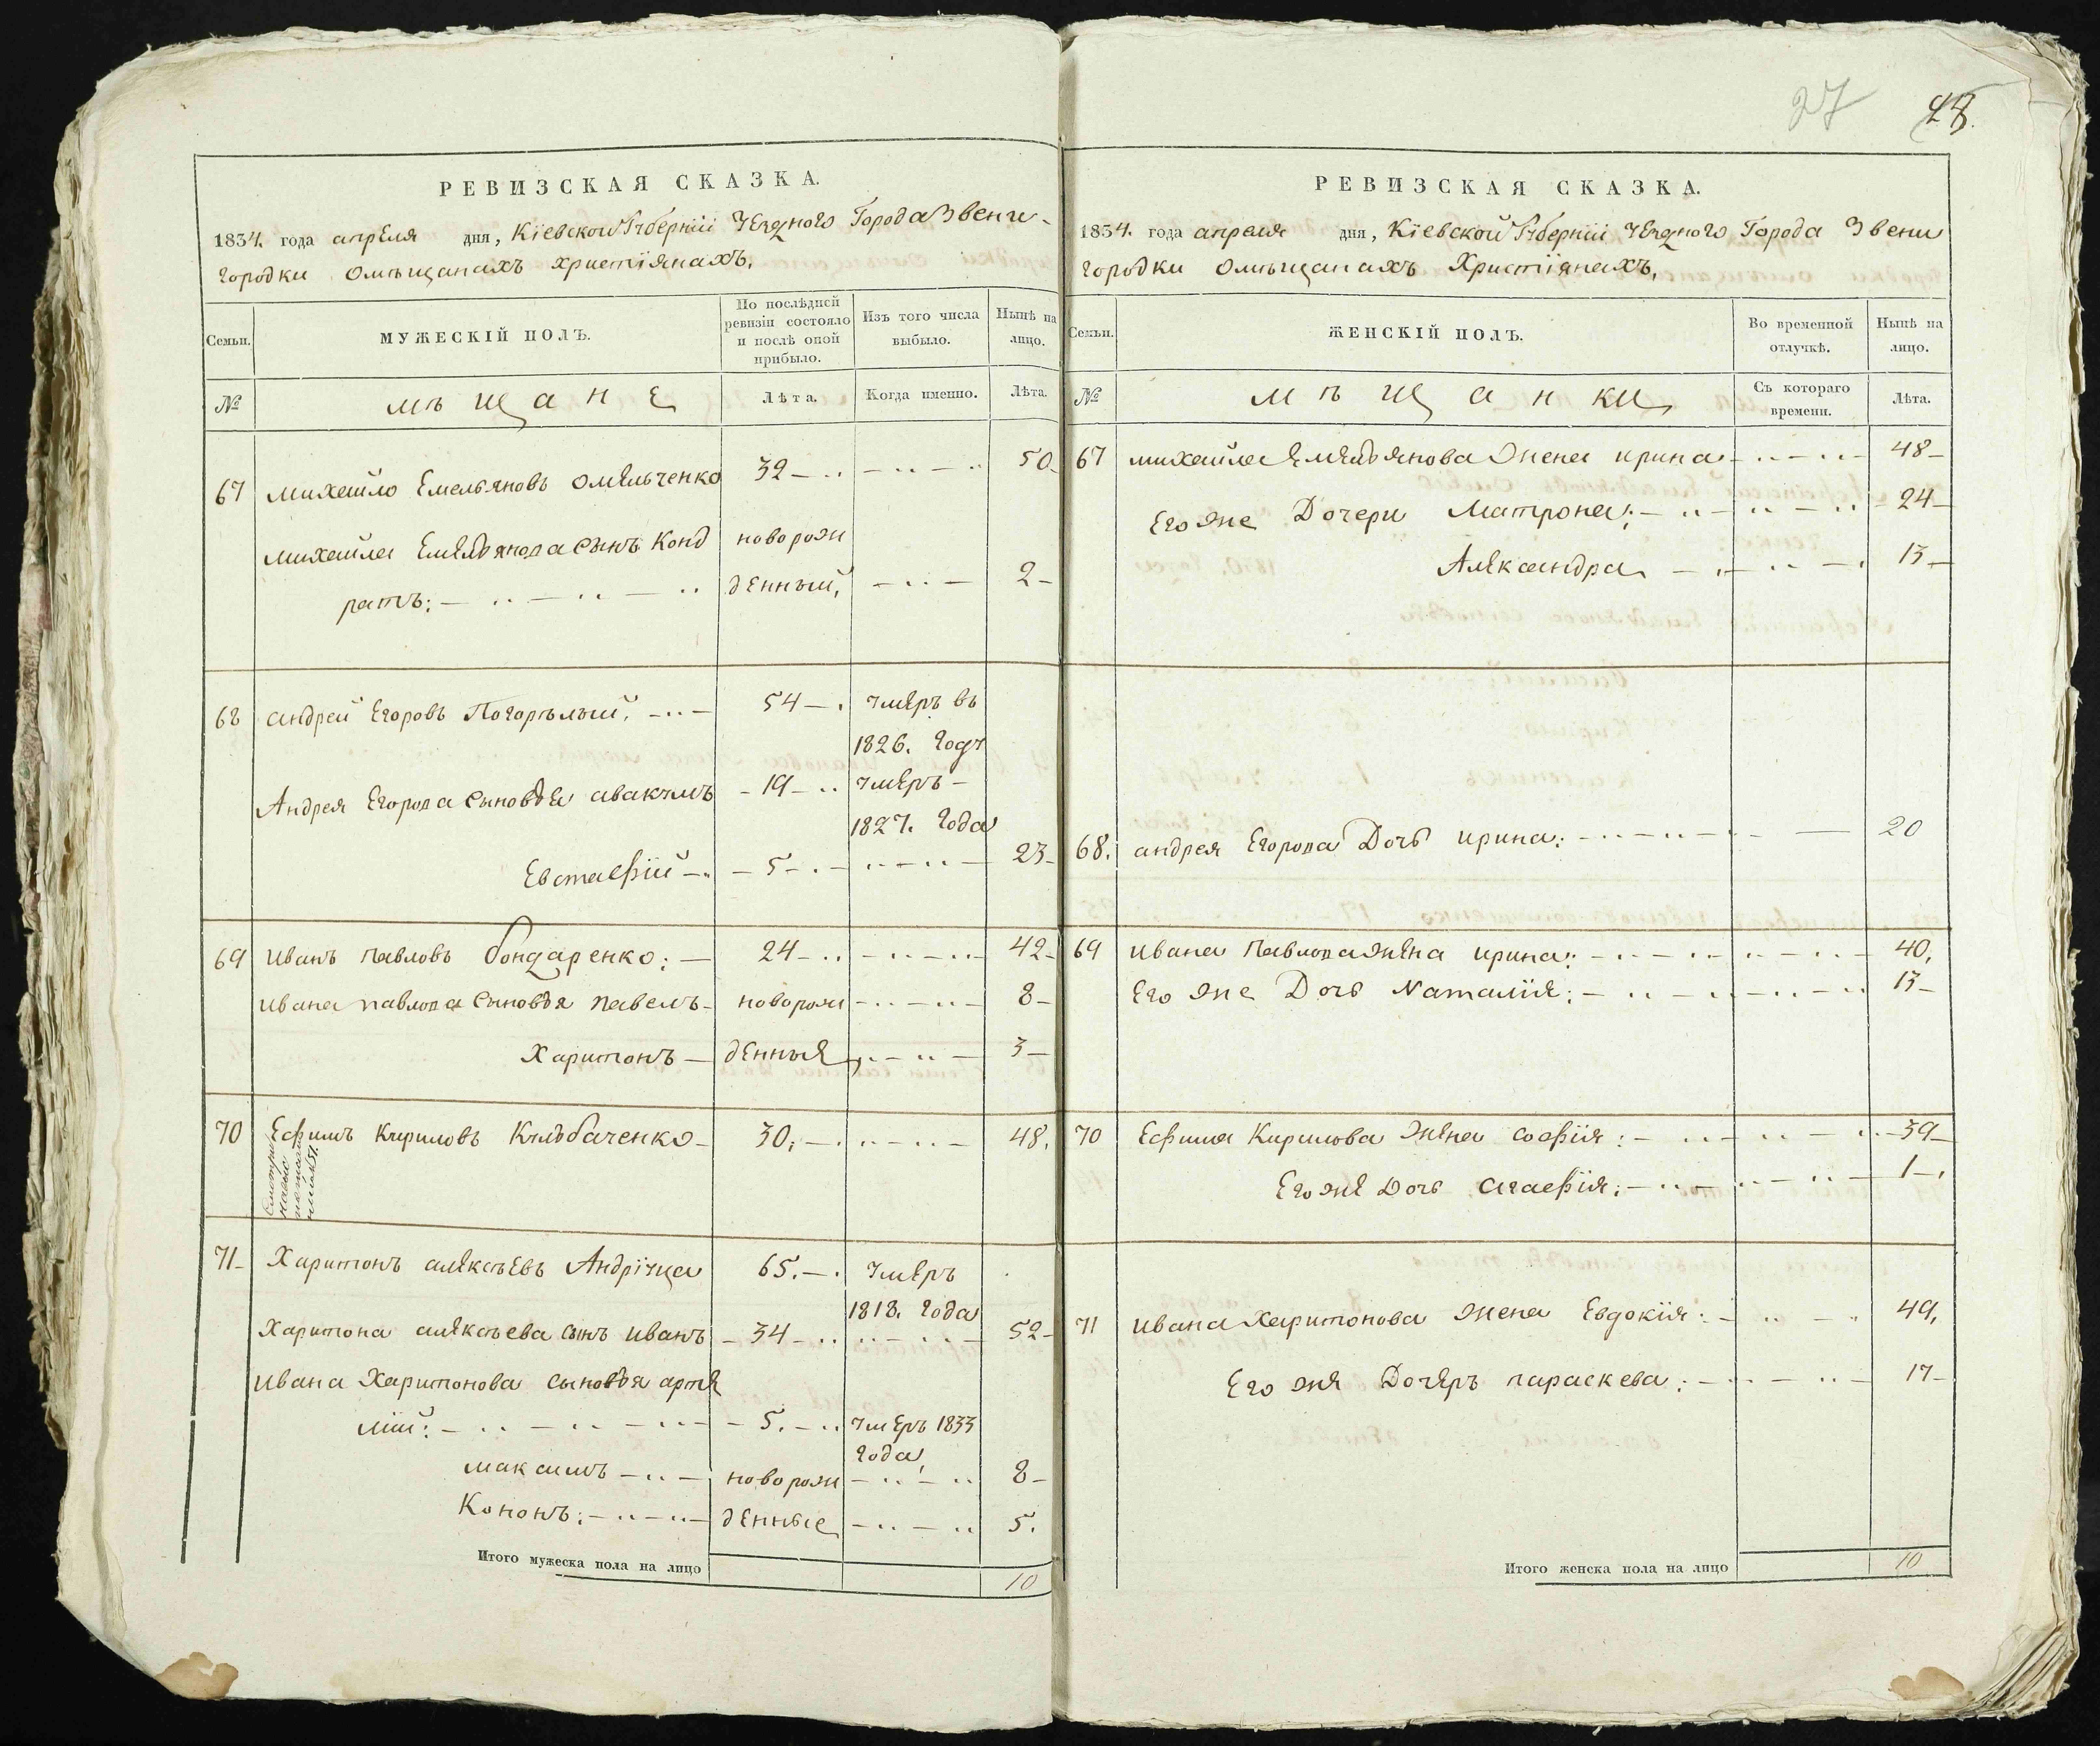 27 28.
РЕВИЗСКАЯ СКАЗКА.
1834. года апреля дня, Кіевской Губерніи Уезднаго Города Звени-
городки омѣщанахъ христіянахъ.
Семьи.
МУЖЕСКІЙ ПОЛЪ.
По послѣдней ревизіи состояло и послѣ оной прибыло.
Изъ того числа выбыло.
Нынѣ на лицо.
№
мѣщане
Лѣта.
Когда именно.
Лѣта.
67 михайло Емельяновъ Омельченко 32 50
михайла Емельянова сынъ Конд новорож
ратъ: денный, 2
68 андрей Егоровъ Погорѣлый, 54 умеръ въ
1826. году
Андрея Егорова сыновья авакумъ 19 умеръ
1827. года
Евстафій 5 23
69 иванъ павловъ бондаренко: 24 42
ивана павлова сыновья павелъ новорож 8
Харитонъ денные, 3
70 Ефимъ Кириловъ Кульбаченко 30. 48.
71 Харитонъ алексѣевъ Андріуца 65. умеръ
1818. года
Харитона алексѣева сынъ иванъ 34 52
ивана Харитонова сыновья арте
мій: 5. умеръ 1833
года,
максимъ новорож 8
Кононъ: денные 5.
Итого мужеска пола на лицо 10
РЕВИЗСКАЯ СКАЗКА.
1834. года апреля дня, Кіевской Губерніи Уезднаго Города Звени
городки омѣщанахъ Христіянахъ.
Семьи.
ЖЕНСКІЙ ПОЛЪ.
Во временной отлучкѣ.
Нынѣ на лицо.
№
мѣщанки
Съ котораго времени.
Лѣта.
67 михайла Емельянова жена ирина 48
Его же Дочери Матрона: 24
Александра 13
68. андрея Егорова Дочь ирина: 20
69 ивана Павлова жена ирина: 40,
Его же Дочь Наталія: 13
70 Ефима Кирилова жена софія: 39
Его же Дочь агафія: 1
71 ивана Харитонова жена Евдокія: 49,
Его же Дочеръ параскева: 17
Итого женска пола на лицо 10